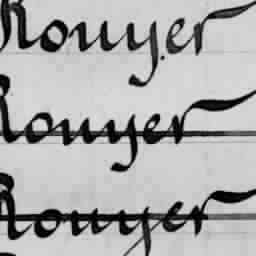 Rouyer
Rouyer
Rouyer